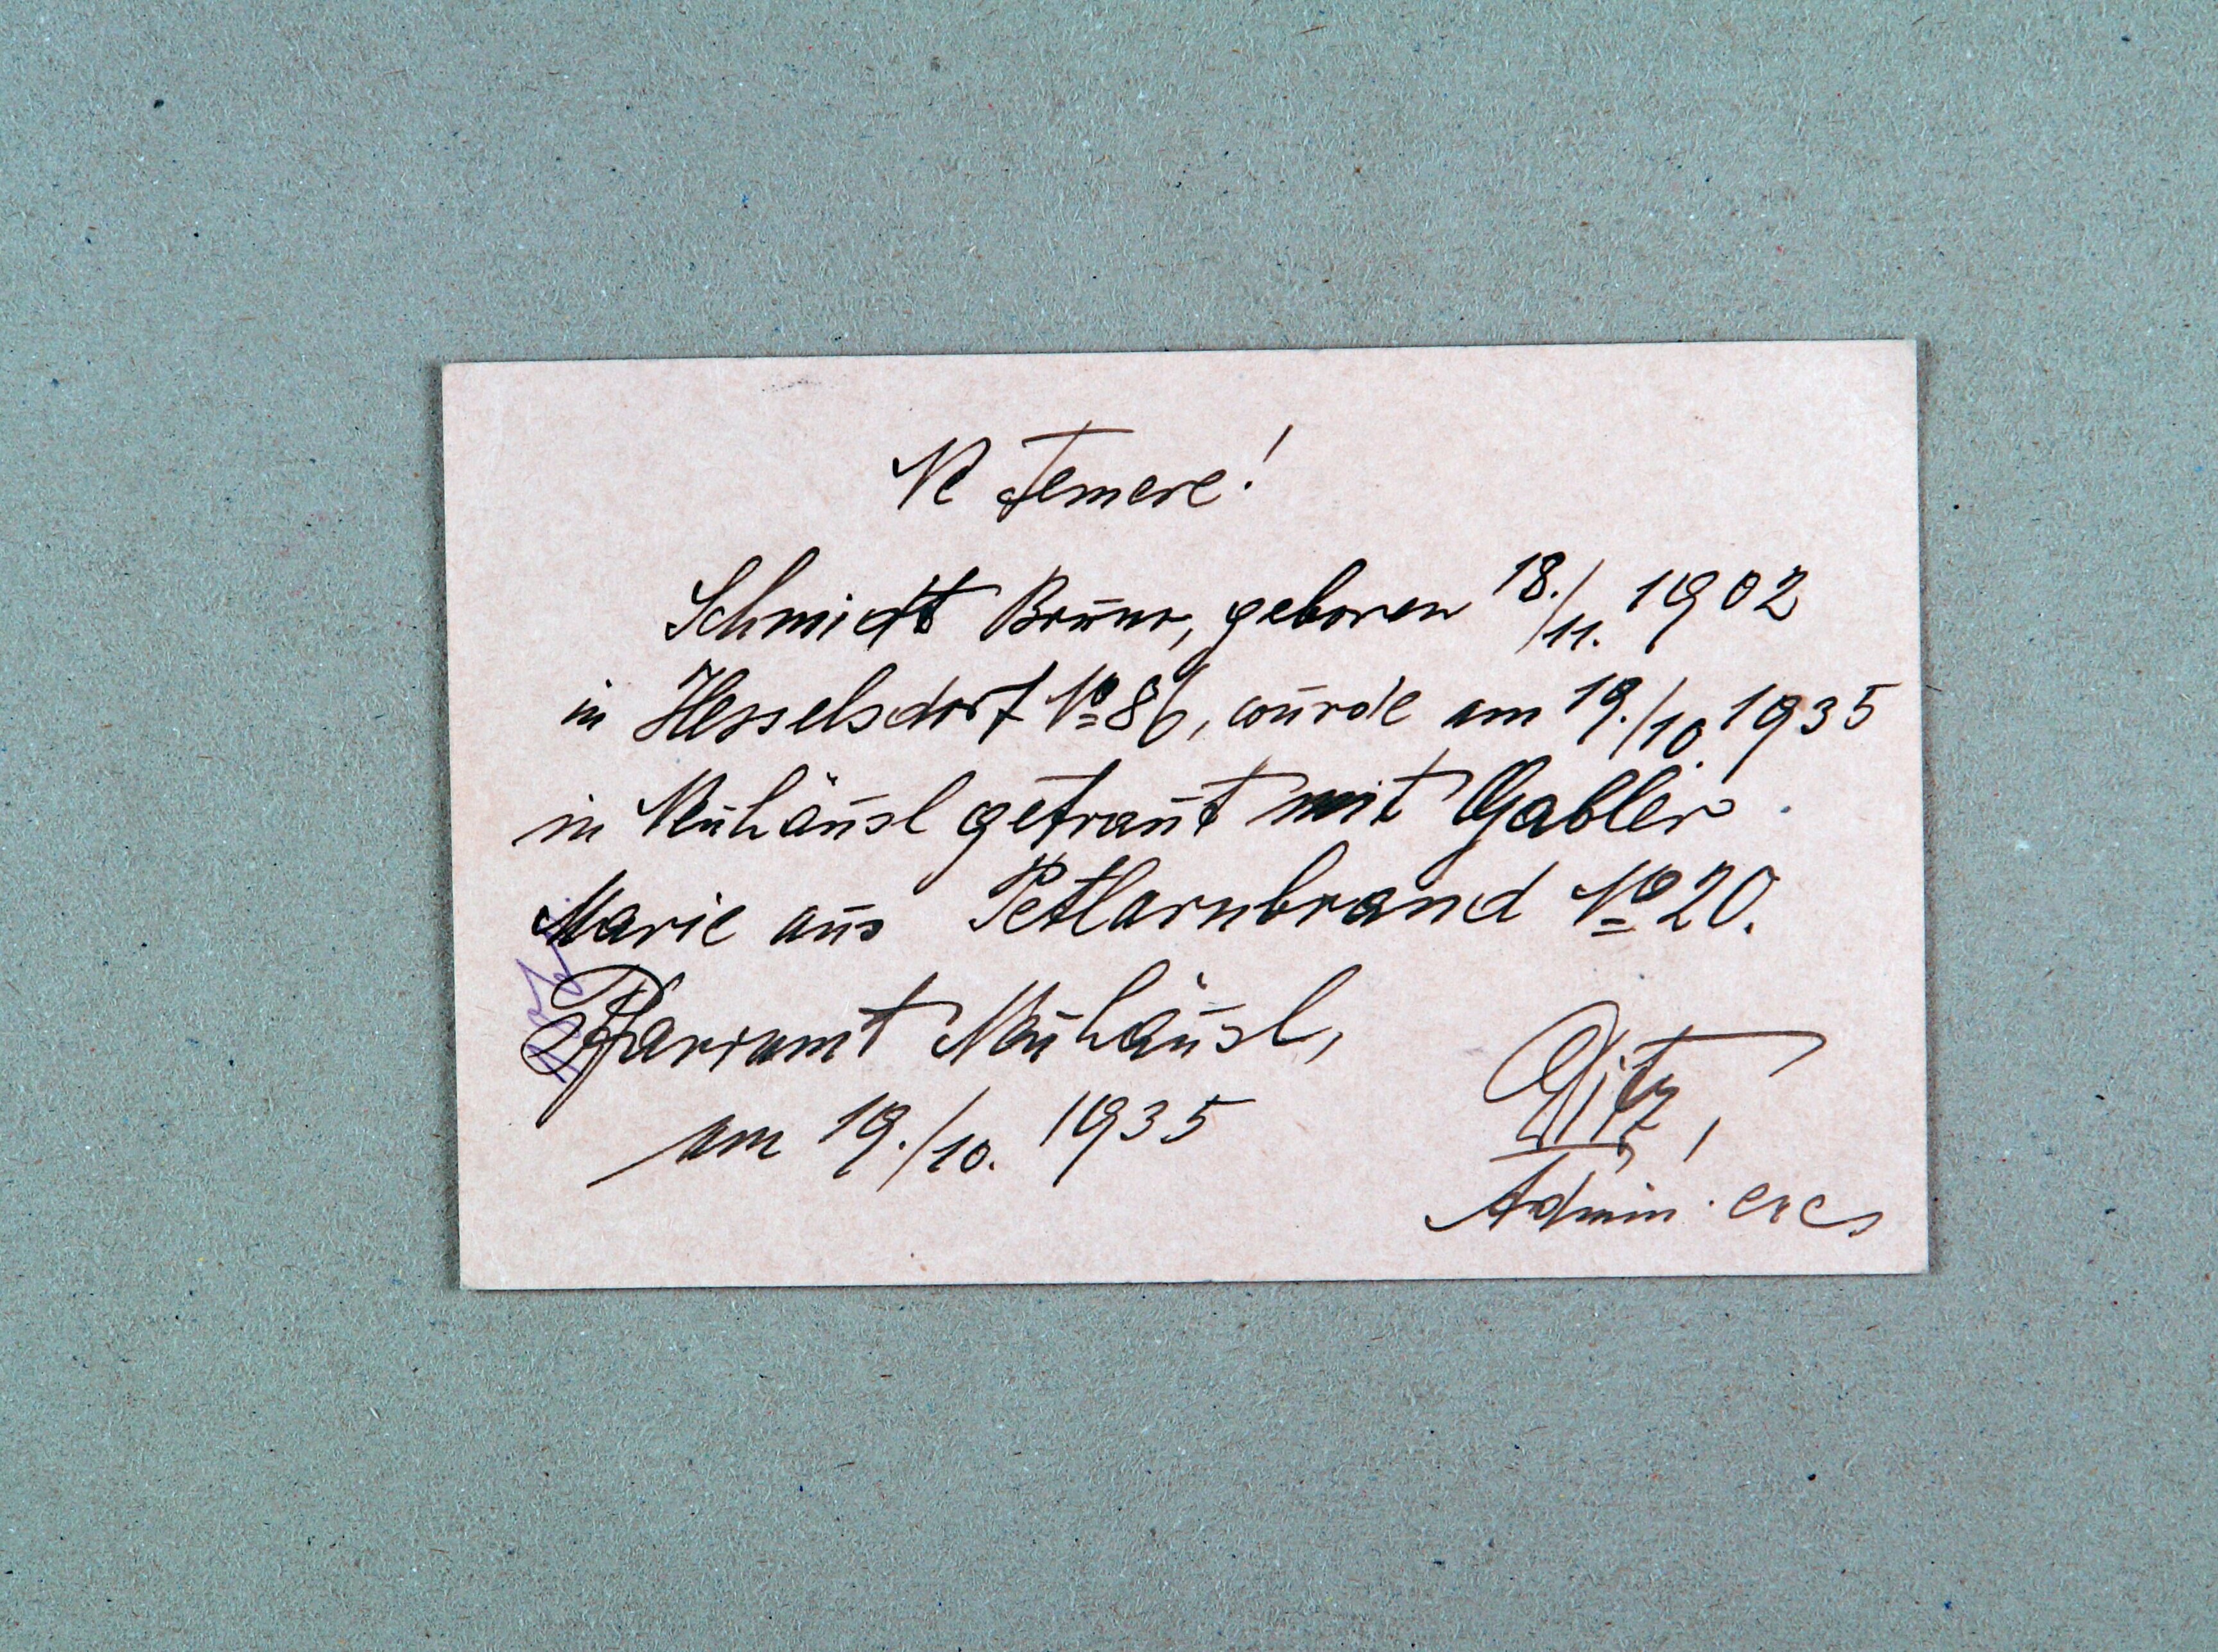 Ne temere!
Schmidt Bruno, geboren 18./11. 1902
in Hesselsdorf No 86, wurde am 19./10. 1935
in Neuhäusl getraut mit Gabler
Marie aus Petlarnbrand No 20.
Pfarramt Neuhäusl,
am 19./10. 1935
Ditz,
Admin. exc.